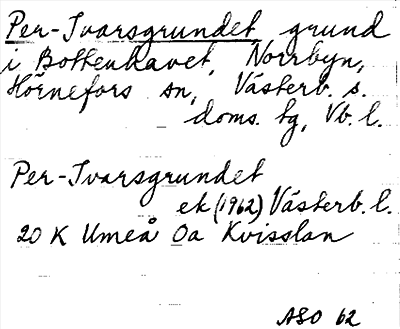 Per-Ivarsgrundet grund
i Bottenhavet, Norrbyn,
Hörnefors sn, Västerb. s.
doms. tg, Vb. l.
Per-Ivarsgrundet
ek (1962) Västerb. l.
20 K Umeå Oa Kvisslan
ASO 62